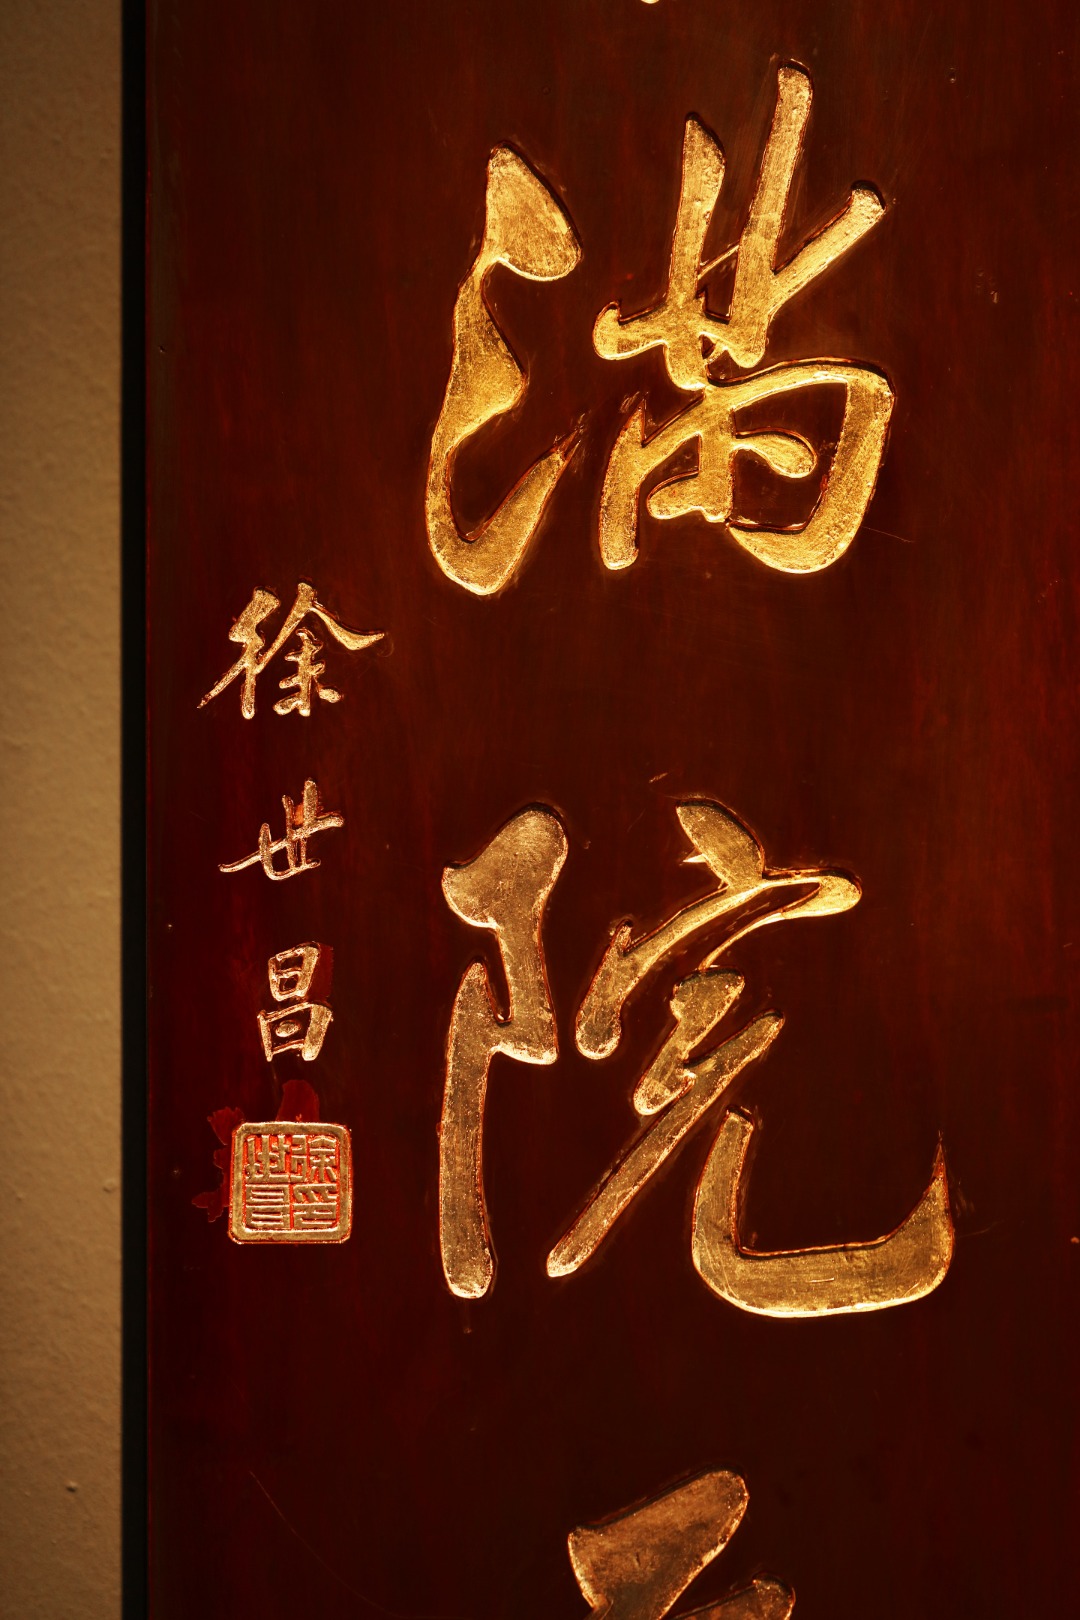 满院
徐世昌
徐世昌印